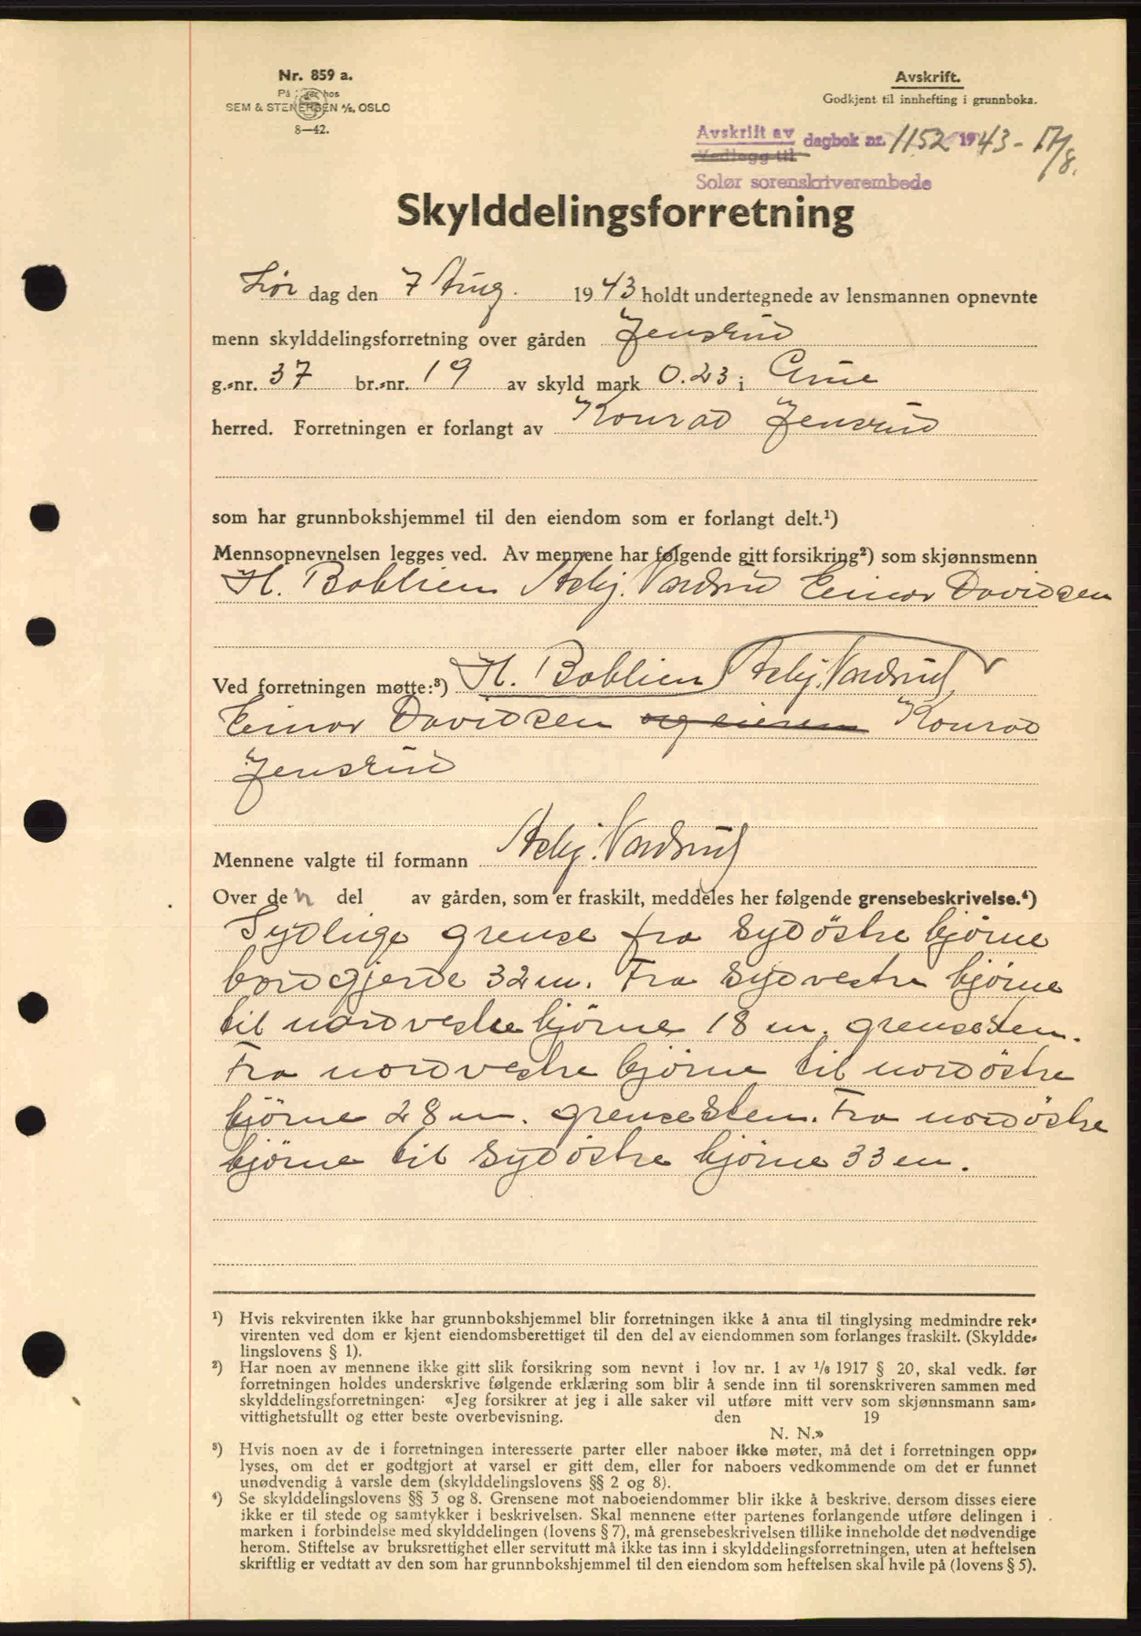 Nr. 859 a.
På lager hos
SEM & STENERSEN A/S, OSLO
8—42.
Avskrift.
Godkjent til innhefting i grunnboka.
Avskrift av
Vedlegg til
dagbok nr. 1152 1943 - 17/8.
Solør sorenskriverembede
Skylddelingsforretning
Lør dag den 7 Aug. 1943 holdt undertegnede av lensmannen opnevnte
menn skylddelingsforretning over gården Jensrud
g.-nr. 37 br.-nr. 19 av skyld mark 0.23 i Grue
herred. Forretningen er forlangt av Konrad Jensrud
som har grunnbokshjemmel til den eiendom som er forlangt delt.¹)
Mennsopnevnelsen legges ved. Av mennene har følgende gitt forsikring²) som skjønnsmenn
H. Bablien Asbj. Nordsrud Einar Davidsen
Ved forretningen møtte:³) H. Bablien Asbj. Nordsrud,
Einar Davidsen og eieren Konrad
Jensrud
Mennene valgte til formann Asbj. Nordsrud
Over den del av gården, som er fraskilt, meddeles her følgende grensebeskrivelse.⁴)
Sydlige grense fra sydöstre hjörne
bordgjerde 32 m. Fra sydvestre hjörne
til nordvestre hjörne 18 m. grensesten.
Fra nordvestre hjörne til nordöstre
hjörne 28 m. grensesten. Fra nordöstre
hjörne til sydöstre hjörne 33 m.
¹) Hvis rekvirenten ikke har grunnbokshjemmel blir forretningen ikke å anta til tinglysing medmindre rek-
virenten ved dom er kjent eiendomsberettiget til den del av eiendommen som forlanges fraskilt. (Skyldde-
lingslovens § 1).
²) Har noen av mennene ikke gitt slik forsikring som nevnt i lov nr. 1 av 1/6 1917 § 20, skal vedk. før
forretningen holdes underskrive følgende erklæring som blir å sende inn til sorenskriveren sammen med
skylddelingsforretningen: «Jeg forsikrer at jeg i alle saker vil utføre mitt verv som skjønnsmann sam-
vittighetsfullt og etter beste overbevisning. den 19
N. N.»
³) Hvis noen av de i forretningen interesserte parter eller naboer ikke møter, må det i forretningen opp-
lyses, om det er godtgjort at varsel er gitt dem, eller for naboers vedkommende om det er funnet
unødvendig å varsle dem (skylddelingslovens §§ 2 og 8).
⁴) Se skylddelingslovens §§ 3 og 8. Grensene mot naboeiendommer blir ikke å beskrive, dersom disses eiere
ikke er til stede og samtykker i beskrivelsen. Skal mennene etter partenes forlangende utføre delingen i
marken i forbindelse med skylddelingen (lovens § 7), må grensebeskrivelsen tillike inneholde det nødvendige
herom. Stiftelse av bruksrettighet eller servitutt må ikke tas inn i skylddelingsforretningen, uten at heftelsen
skriftlig er vedtatt av den som har grunnbokshjemmel til den eiendom som heftelsen skal hvile på (lovens § 5).